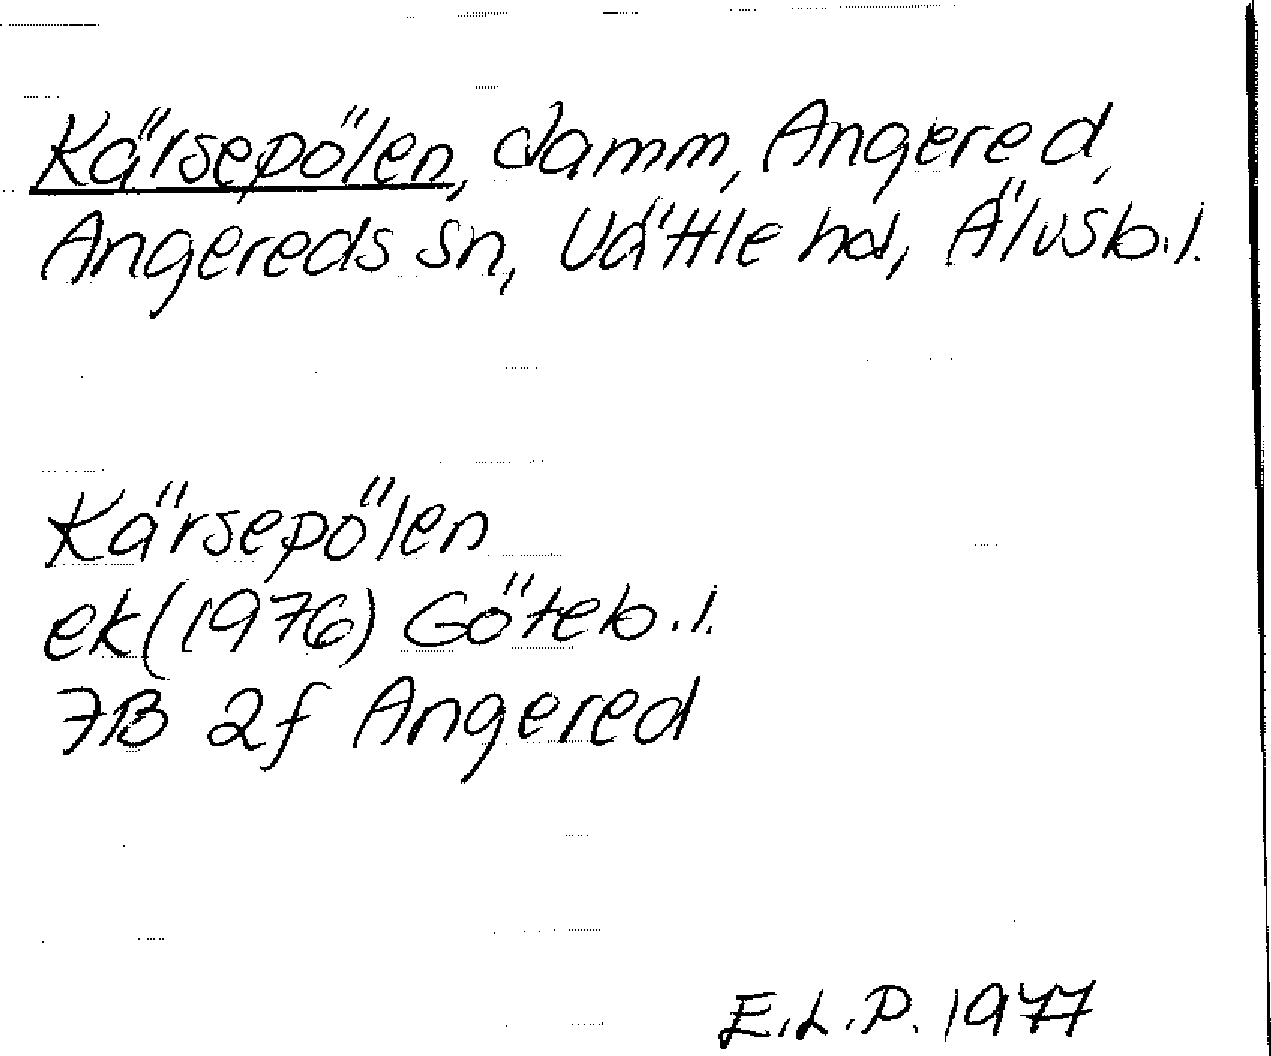 Kärsepölen, damm, Angered,
Angereds sn, Vättle hd, Älvsb.l.
Kärsepölen
ek (1976) Göteb.l.
7B 2f Angered
E.L.P. 1977